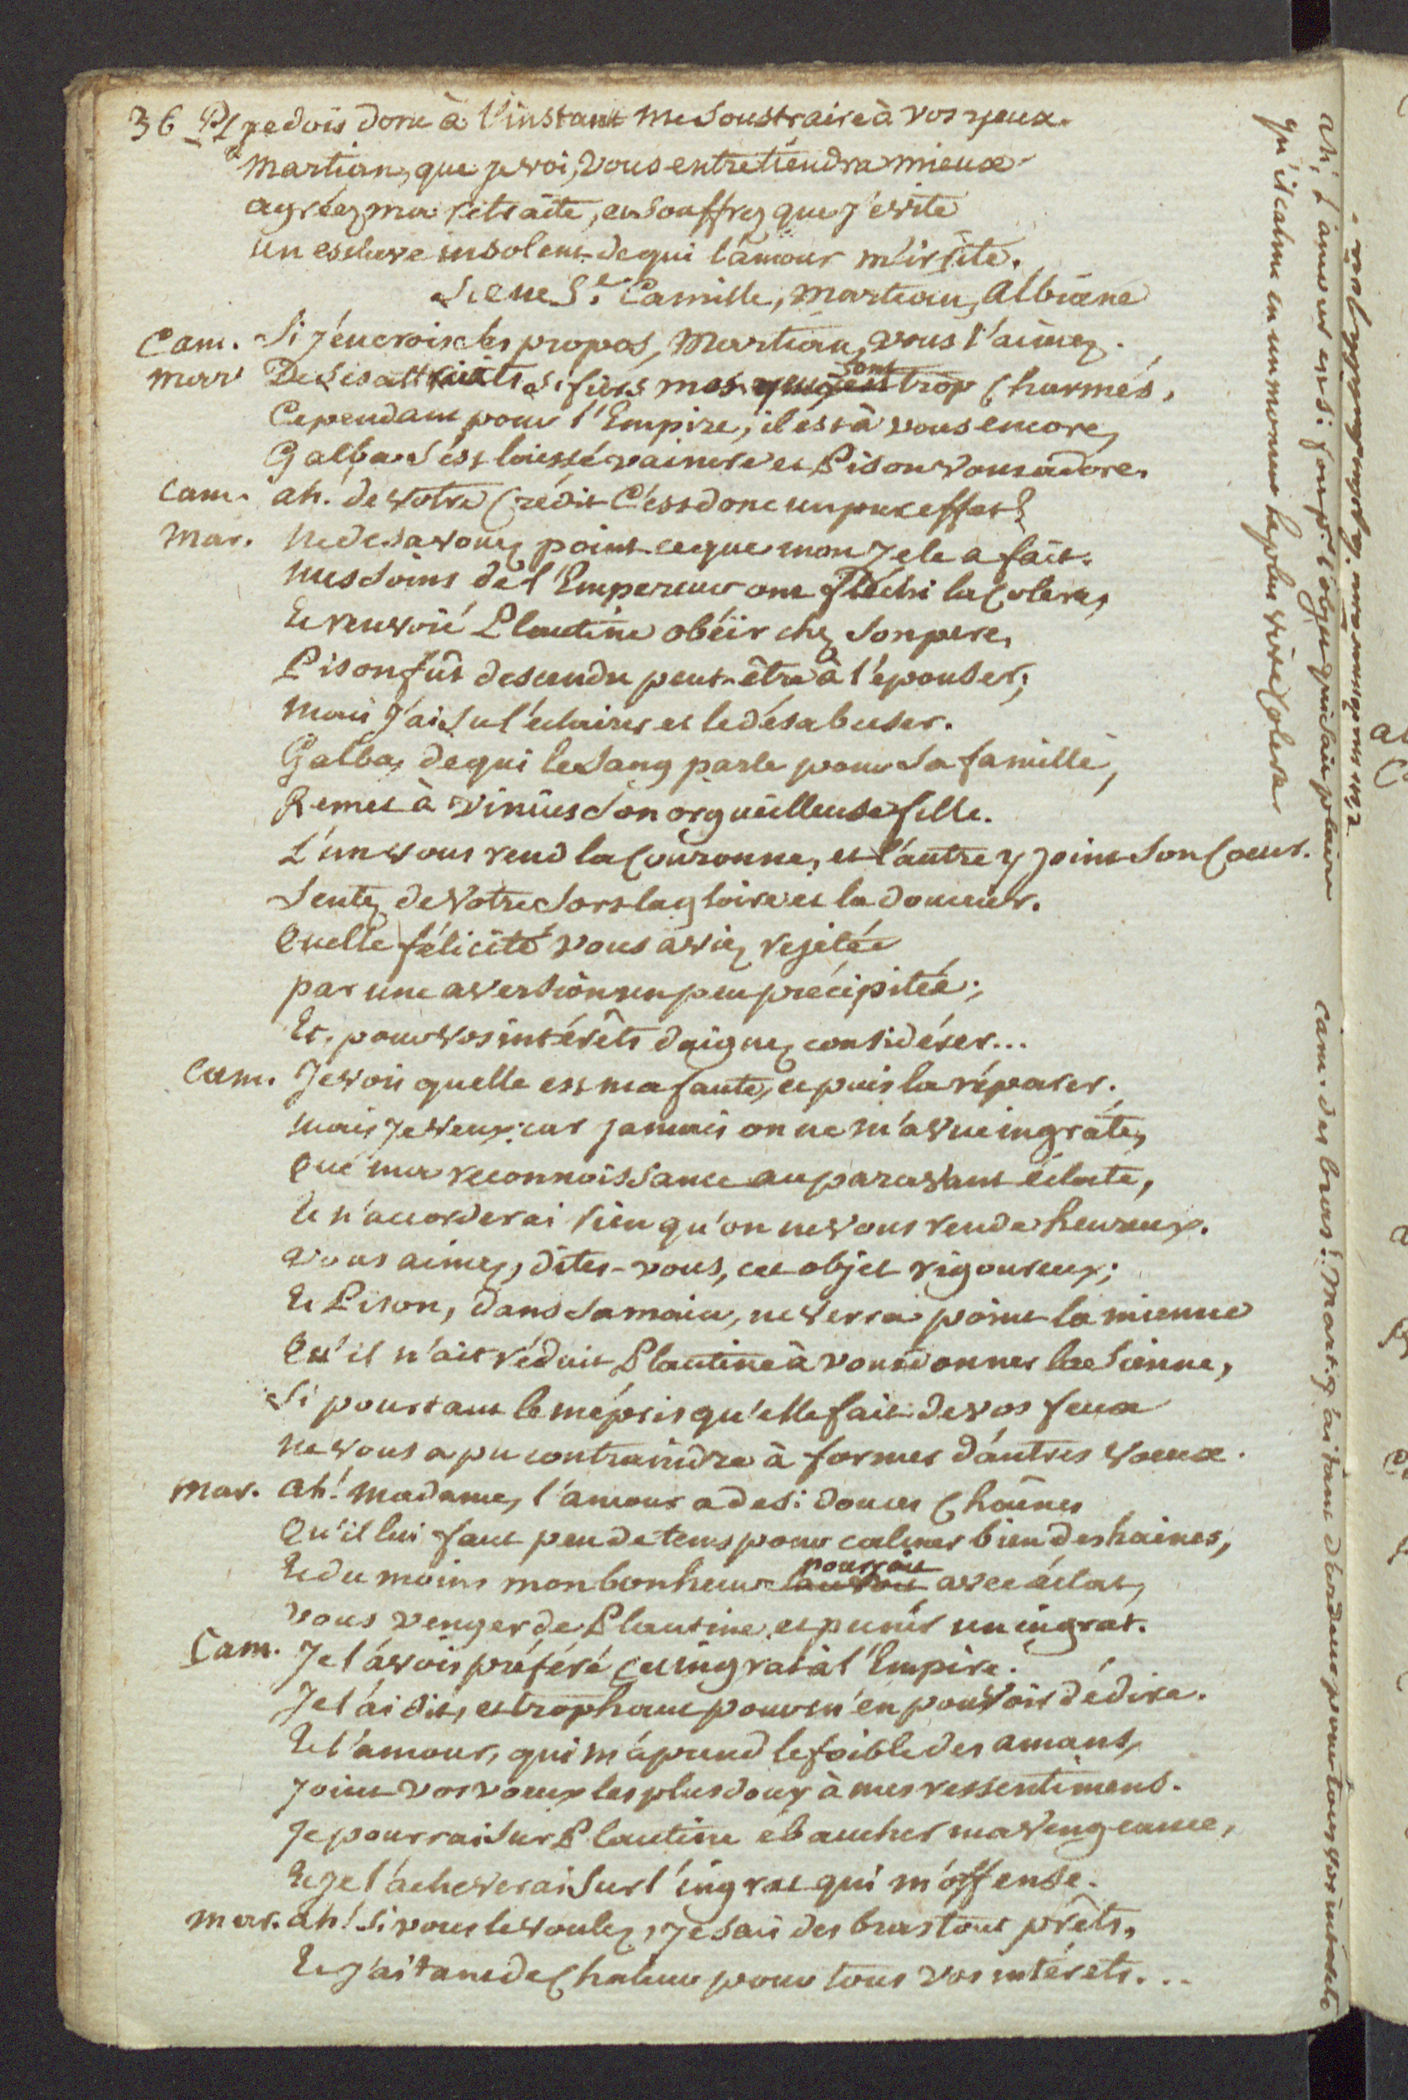 36 Pl je dois donc à l'instant me soustraire à vos yeux.
Martian, que je voi, vous entretiendra mieux
agréez ma retraite, et souffrez que j'évite
un esclave insolent de qui l'amour m'irrite.
Scene 5.e Camille, Martian, Albiane
Cam. Si j'en crois ses propos, Martian, vous l'aimez.
Mar. De ses attraits si fiers mes yeux sont trop charmés,
Cependant pour l'Empire, il est à vous encore,
Galba s'est laissé vaincre et Pison vous adore.
Cam. ah! de votre crédit c'est donc un pur effet?
Mar. Ne desavouez point ce que mon zele a fait.
Mes soins de l'Empereur ont fléchi la colere,
Et renvoié Plautine obéir chez son pere,
Pison fût descendu peut-être à l'épouser;
Mais j'ai su l'éclairer et le désabuser.
Galba, de qui le sang parle pour sa famille,
Remet à Vinius son orgueilleuse fille.
L'un vous rend la Couronne, et l'autre y joint son Coeur.
Sentez de votre sort la gloire et la douceur.
Quelle félicité vous aviez rejetée
par une aversion un peu précipitée;
Et, pour vos intérêts daignez considérer...
Cam. Je vois quelle est ma faute, et puis la réparer.
mais je veux; car jamais on ne m'a vue ingrate,
Que ma reconnoissance auparavant éclate,
Et n'accorderai rien qu'on ne vous rende heureux.
vous aimez, dites-vous, cet objet rigoureux;
Et Pison, dans sa main, ne verra point la mienne
Qu'il n'ait réduit Plautine à vous donner la sienne,
Si pourtant le mépris qu'elle fait de vos feux
ne vous a pu contraindre à former d'autres voeux.
Mar. ah! Madame, l'amour a de si douces chaînes
Qu'il lui faut peu de tems pour calmer bien des haines,
Et du moins mon bonheur pourroit avec éclat,
vous venger de Plautine et punir un ingrat.
Cam. Je l'avois préféré cet ingrat à l'Empire.
Je l'ai dit, et trop haut pour m'en pouvoir dédire.
Et l'amour, qui m'aprend le foible des amans,
joint vos voeux les plus doux à mes ressentimens.
Je pourrai sur Plautine ébaucher ma vengeance,
Et je l'acheverai sur l'ingrat qui m'offense.
Mar. ah! si vous le voulez, je sais des bras tout prêts,
Et j'ai tant de chaleur pour tous vos intérêts...
Cam. des bras! Mar. j'ai tant d'ardeur pour tous vos intérêts
ah, l'amour est si fou
qu'il calme en un moment la plus vive colere